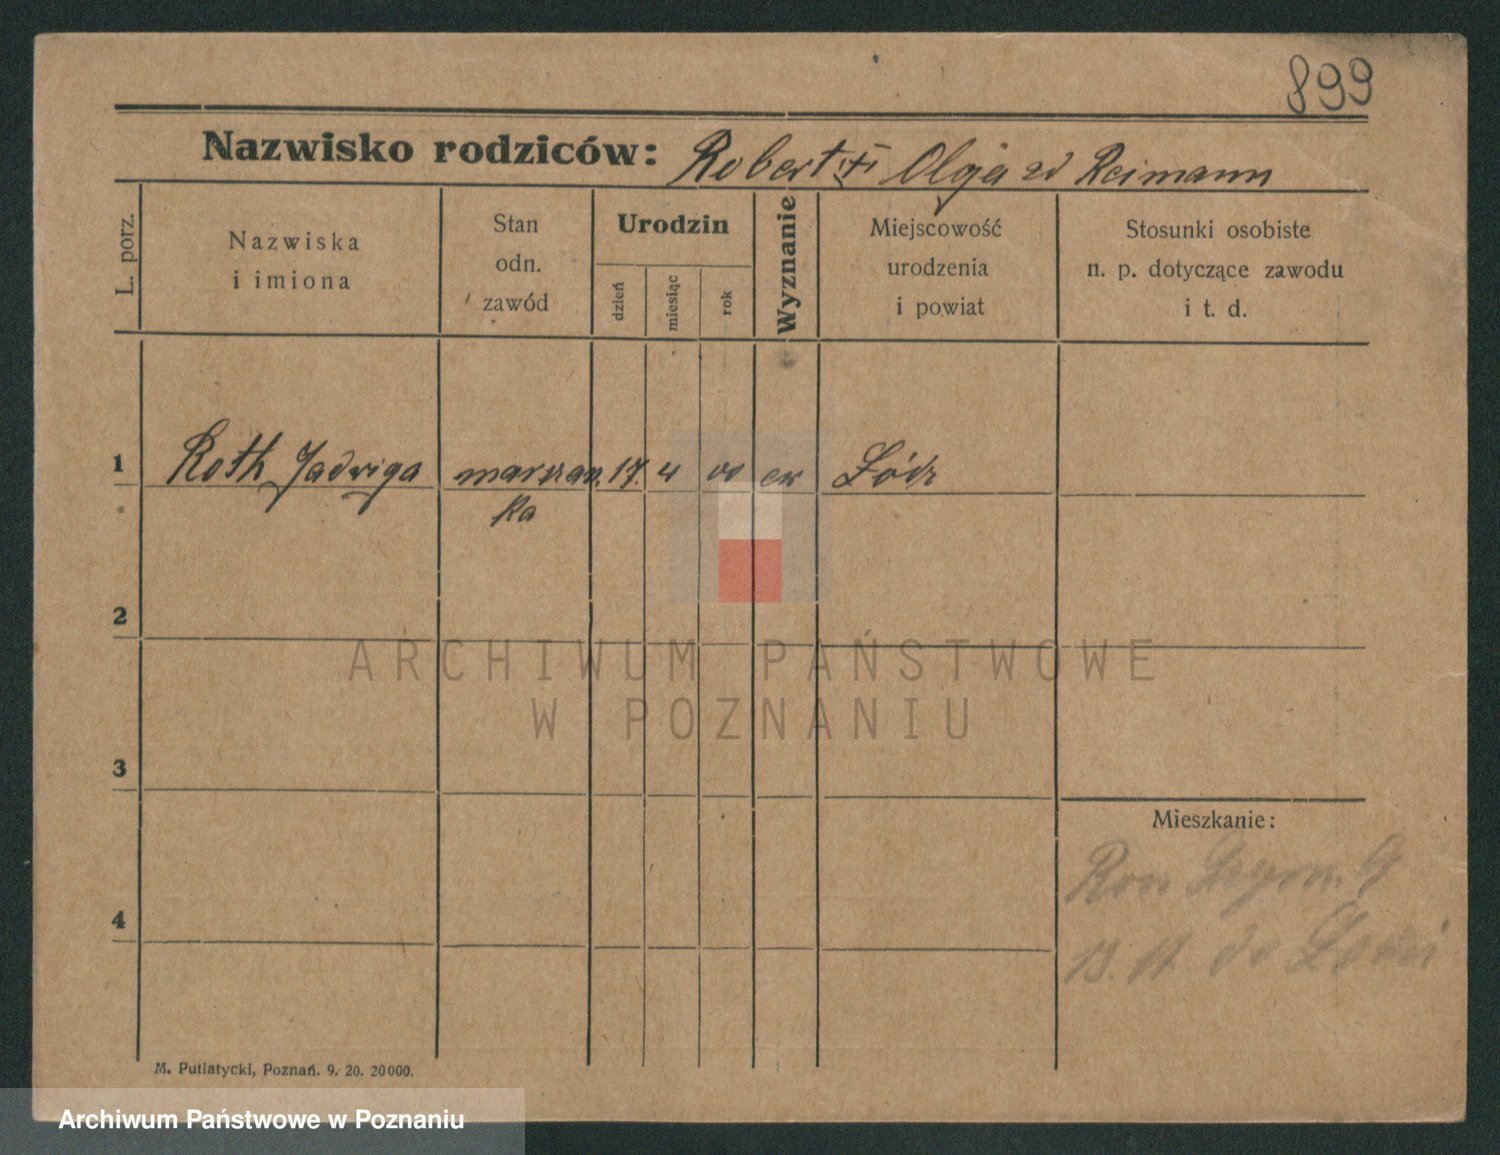 899
Nazwisko rodziców: Robert Olga zd Reimann
L. porz.
Nazwiska
i imiona
Stan
odn.
zawód
Urodzin
dzień
miesiąc
rok
Wyznanie
Miejscowość
urodzenia
i powiat
Stosunki osobiste
n. p. dotyczące zawodu
i t. d.
1 Roth Jadwiga marszan 17. 4 00 ew Łódz
ka
2
ARCHIWUM PAŃSTWOWE
W POZNANIU
3
Mieszkanie:
4
do
M. Putiatycki, Poznań. 9. 20. 20000.
Archiwum Państwowe w Poznaniu